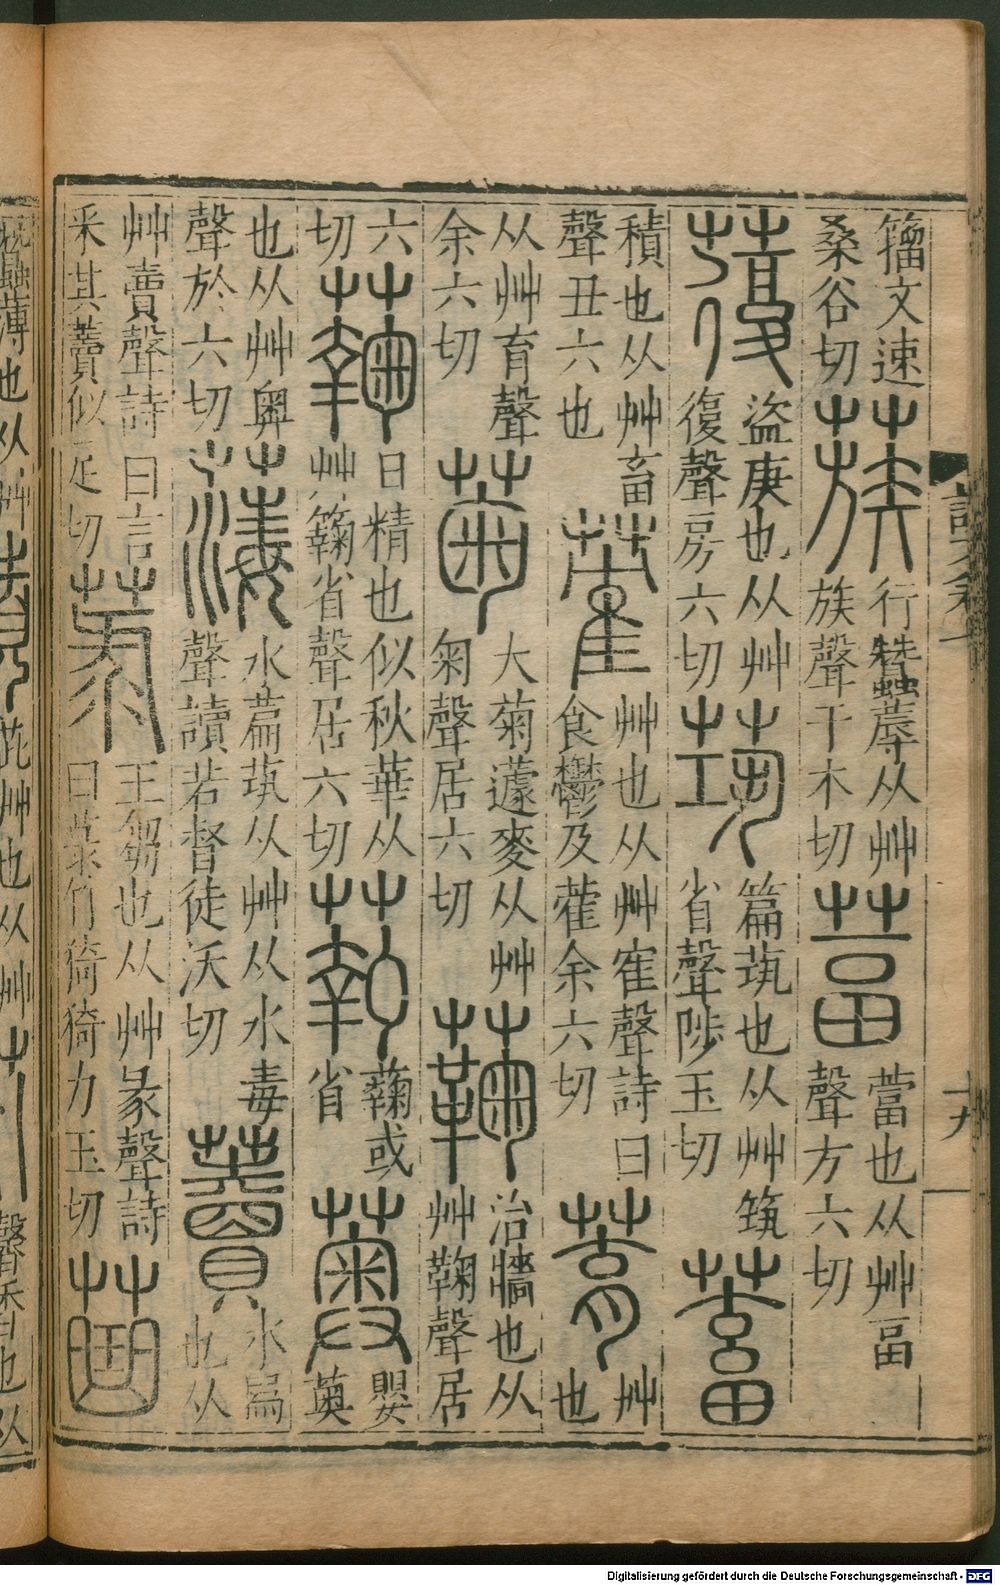 籒文速
桑谷切
蔟
行蠶蓐从艸
族聲千木切
葍
䔰也从艸畐
聲方六切
蕧
盜庚也从艸
復聲房六切
茿
篇茿也从艸筑
省聲陟玉切
蓄
積也从艸畜
聲丑六也
蒮
艸也从艸隺聲詩曰
食鬱及蒮余六切
艸
也
从艸育聲
余六切
菊
大菊蘧麥从艸
匊聲居六切
蘜
治牆也从
艸鞠聲居
六
切
日精也似秋華从
艸䉤省聲居六切
蘜或
省
薁
嬰
薁
也从艸奥
聲於六切
水萹茿从艸从水毒
聲讀若督徒沃切
藚
水舄
也从
艸賣聲詩曰言
采其藚似足切
菉
王芻也从艸彔聲詩
曰菉竹猗猗力玉切
十九
Digitalisierung gefördert durch die Deutsche Forschungsgemeinschaft - DFG